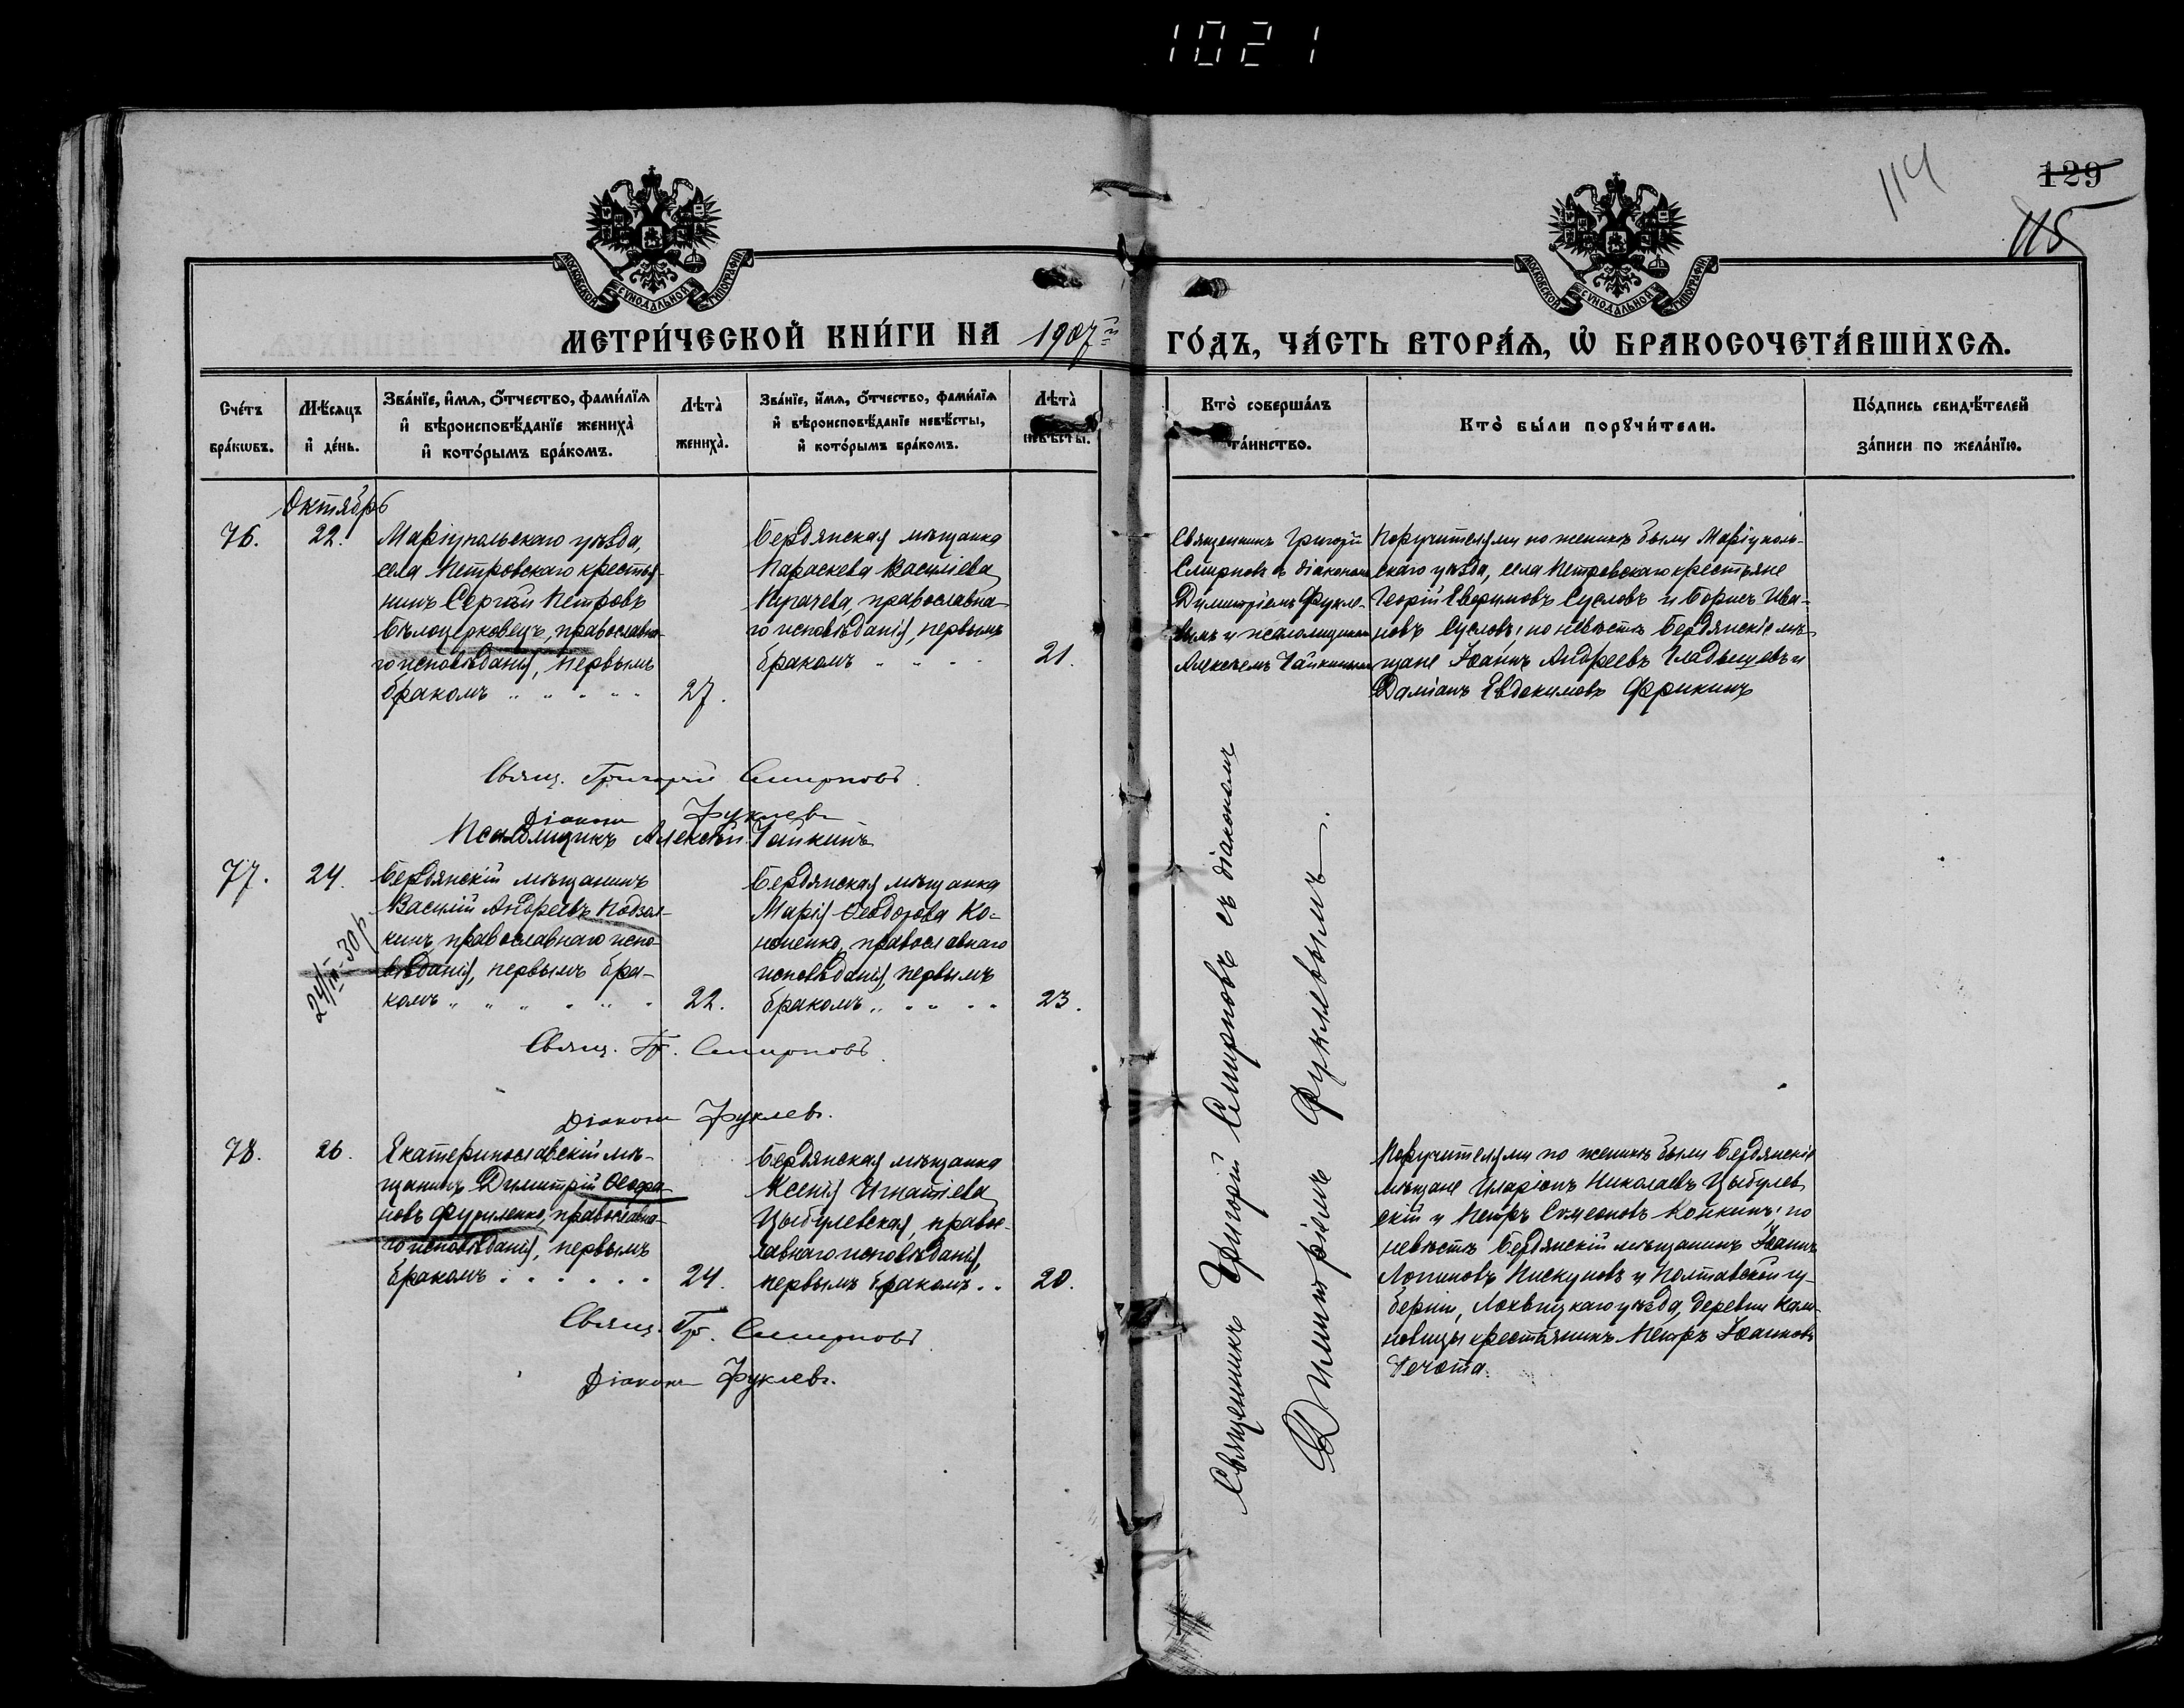 1021
114
129
115
МОСКОВСКОЙ СѴНОДАЛЬНОЙ ТИПОГРАФІИ
МОСКОВСКОЙ СѴНОДАЛЬНОЙ ТИПОГРАФІИ
МЕТРИ́ЧЕСКОЙ КНИ́ГИ НА 1907й ГО́ДЪ, ЧА́СТЬ ВТОРА́Ѧ, Ѡ҆ БРАКОСОЧЕТА́ВШИХСѦ.
Сче́тъ бра́кѡвъ.
Мѣ́сѧцъ и҆ де́нь.
Зва́нїе, и҆́мѧ, ѻ҆́тчество, фами́лїѧ
и҆ вѣроисповѣ́данїе жениха̀
и҆ кото́рымъ бра́комъ.
Лѣта̀ жениха̀.
Зва́нїе, и҆́мѧ, ѻ҆́тчество, фами́лїѧ
и҆ вѣроисповѣ́данїе невѣ́сты,
и҆ кото́рымъ бра́комъ.
Лѣта̀ невѣ́сты.
Кто̀ соверша́лъ та́инство.
Кто̀ бы́ли порꙋчи́тели.
По́дпись свидѣ́телей
за́писи по жела́нїю.
Октябрь
76.
22.
Маріупольскаго уѣзда,
села Петровскаго крестья-
нинъ Сергѣй Петровъ
Бѣлоцерковецъ, православна-
го исповѣданія, первымъ
бракомъ
27.
Бердянская мѣщанка
Параскева Василіева
Пугачева, православна-
го исповѣданія, первымъ
бракомъ
21.
Священникъ Григорій
Смирновъ съ діакономъ
Димитріемъ Фукле-
вымъ и псаломщикомъ
Алексѣемъ Чайкинымъ
Поручителями по женихѣ были Маріуполь-
скаго уѣзда, села Петровскаго крестьяне
Георгій Евфимовъ Сусловъ и Борисъ Ива-
новъ Сусловъ; по невѣстѣ Бердянскіе мѣ-
щане Іоаннъ Андреевъ Гладышевъ и
Даміанъ Евдокимовъ Фрикинъ
Свящ. Григорій Смирновъ.
Діаконъ Фуклевъ
Псаломщикъ Алексѣй Чайкинъ
77.
24.
24/III-30 р.
Бердянскій мѣщанинъ
Василій Андреевъ Подзол-
кинъ, православнаго испо-
вѣданія, первымъ бра-
комъ
22.
Бердянская мѣщанка
Марія Ѳеодорова Ко-
ноненко, православнаго
исповѣданія, первымъ
бракомъ
23.
Свящ. Гр. Смирновъ.
Діаконъ Фуклевъ.
Священникъ Григорій Смирновъ съ діакономъ
Димитріемъ Фуклевымъ.
78.
26.
Екатеринославскій мѣ-
щанинъ Димитрій Ѳеофа-
новъ православна-
го исповѣданія, первымъ
бракомъ
24.
Бердянская мѣщанка
Ксенія Игнатіева
Цыбулевская, правос-
лавнаго исповѣданія,
первымъ бракомъ
20.
Поручителями по женихѣ были Бердянскіе
мѣщане Иларіонъ Николаевъ Цыбулев-
скій и Петръ Симеоновъ Конкинъ; по
невѣстѣ Бердянскій мѣщанинъ Іоаннъ
Пискуновъ и Полтавской гу-
берніи, Лохвицкаго уѣзда, деревни
крестьянинъ Петръ Іоанновъ
Чечота.
Свящ. Гр. Смирновъ
Діаконъ Фуклевъ.